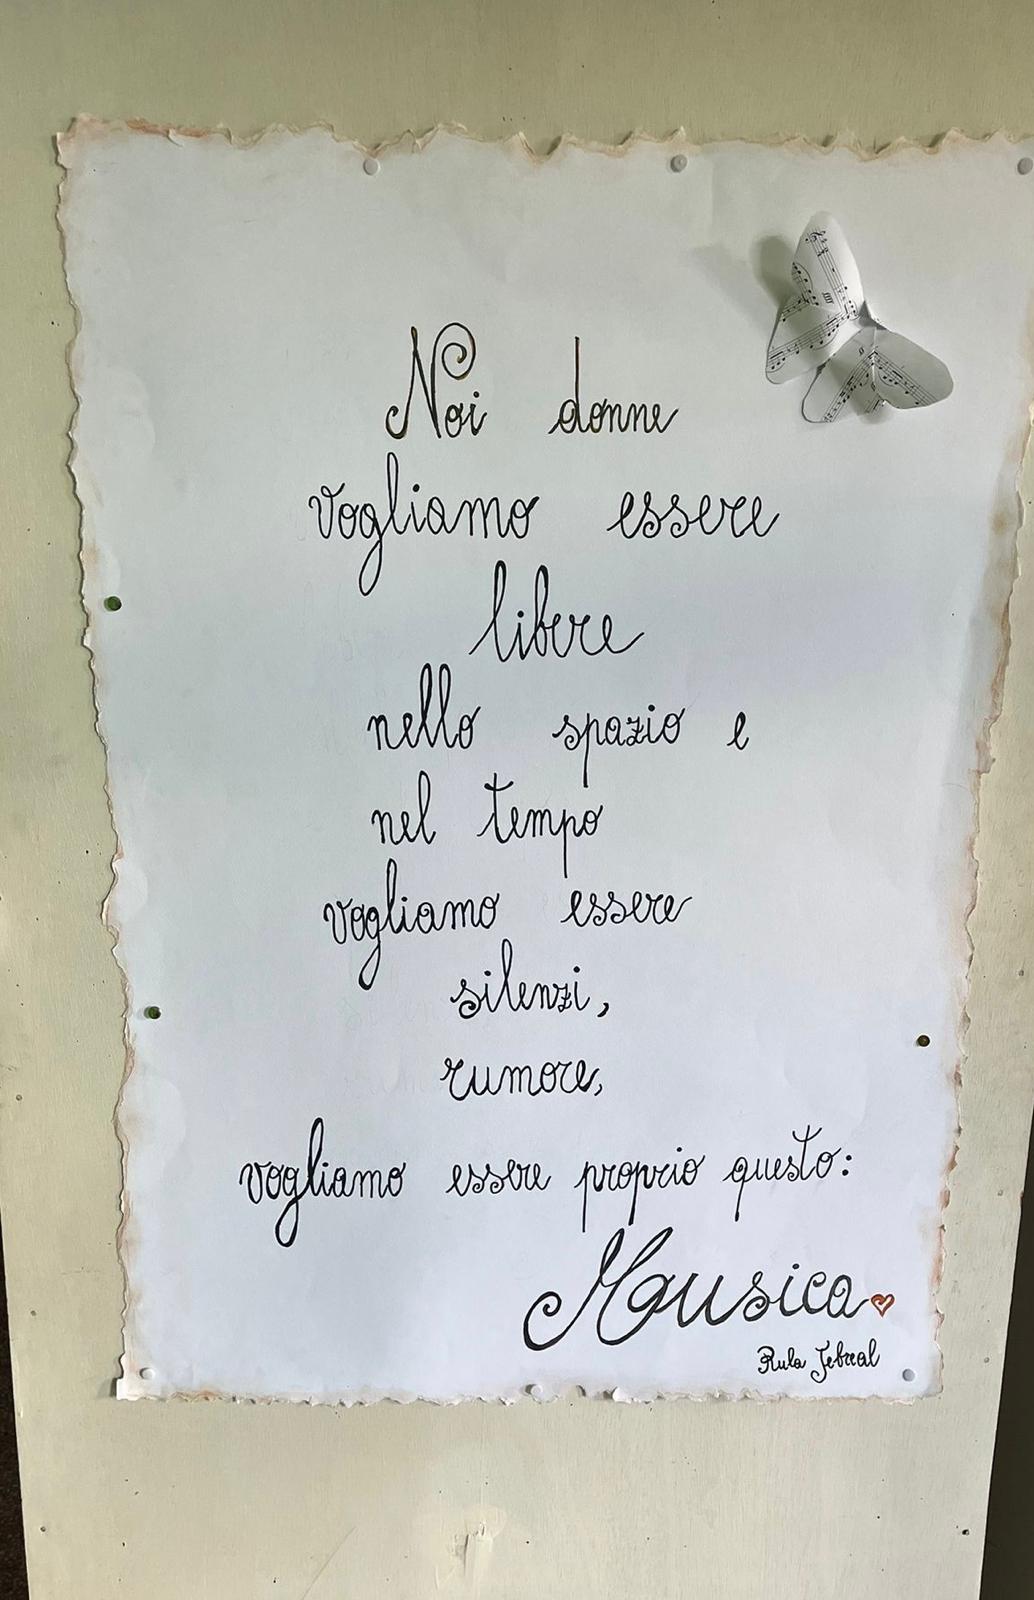 Noi donne
vogliamo essere
libere
nello spazio e
nel tempo
vogliamo essere
silenzi,
rumore,
vogliamo essere proprio questo:
Musica
Rula Jebreal